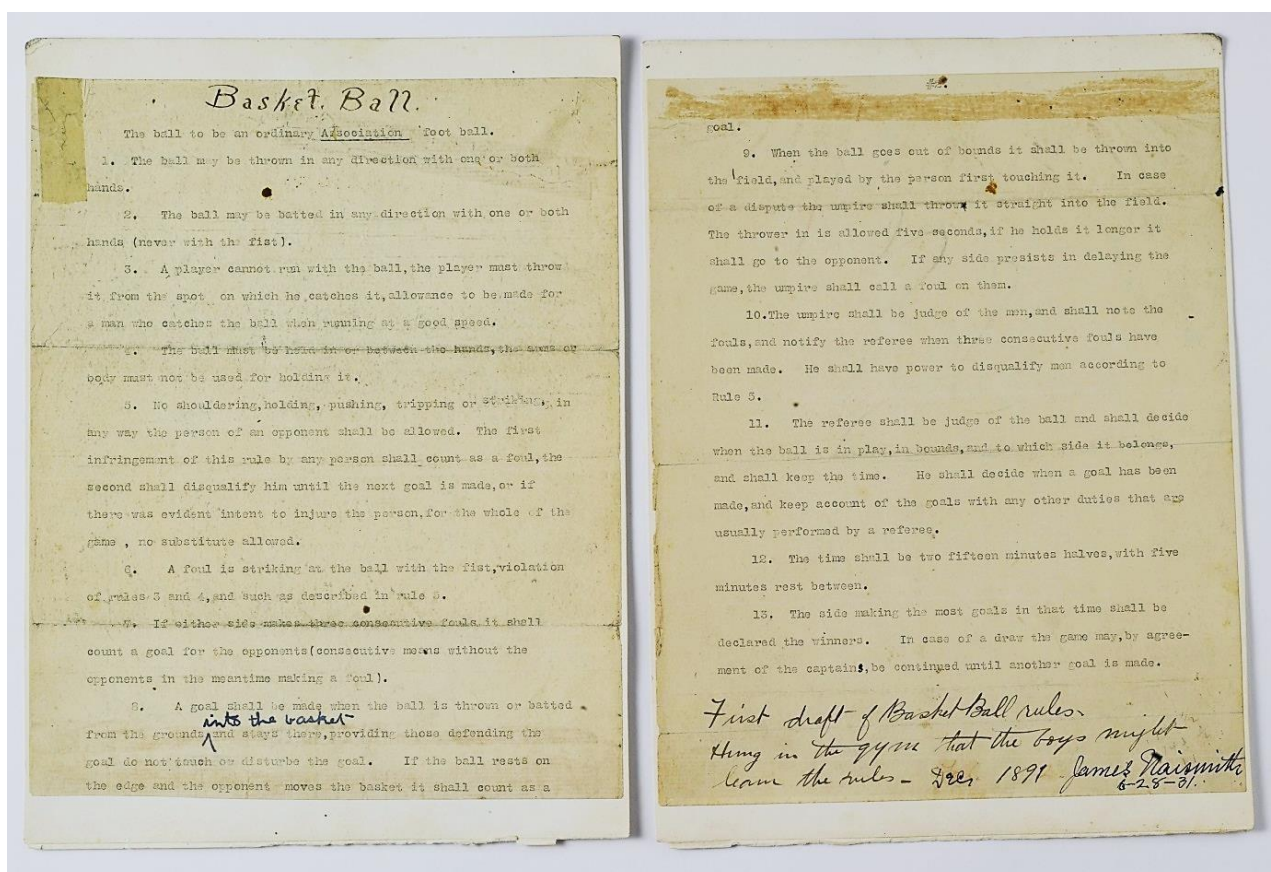 Basket. Ball.
The ball to be an ordinary Association foot ball.
1. The ball may be thrown in any direction with one or both
hands.
2. The ball may be batted in any direction with one or both
hands (never with the fist).
3. A player cannot run with the ball, the player must throw
it from the spot on which he catches it, allowance to be made for
a man who catches the ball when running at a good speed.
4. The ball must be held in or between the hands, the arms or
body must not be used for holding it.
5. No shouldering, holding, pushing, tripping or striking, in
any way the person of an opponent shall be allowed. The first
infringement of this rule by any person shall count as a foul, the
second shall disqualify him until the next goal is made, or if
there was evident intent to injure the person, for the whole of the
game, no substitute allowed.
6. A foul is striking at the ball with the fist, violation
of rules 3 and 4, and such as described in rule 5.
7. If either side makes three consecutive fouls, it shall
count a goal for the opponents (consecutive means without the
opponents in the meantime making a foul).
8. A goal shall be made when the ball is thrown or batted
into the basket
from the grounds and stays there, providing those defending the
goal do not touch or disturbe the goal. If the ball rests on
the edge and the opponent moves the basket it shall count as a
goal.
9. When the ball goes out of bounds it shall be thrown into
the field, and played by the person first touching it. In case
of a dispute the umpire shall throw it straight into the field.
The thrower in is allowed five seconds, if he holds it longer it
shall go to the opponent. If any side presists in delaying the
game, the umpire shall call a foul on them.
10. The umpire shall be judge of the men, and shall note the
fouls, and notify the referee when three consecutive fouls have
been made. He shall have power to disqualify men according to
Rule 5.
11. The referee shall be judge of the ball and shall decide
when the ball is in play, in bounds, and to which side it belongs,
and shall keep the time. He shall decide when a goal has been
made, and keep account of the goals with any other duties that are
usually performed by a referee.
12. The time shall be two fifteen minutes halves, with five
minutes rest between.
13. The side making the most goals in that time shall be
declared the winners. In case of a draw the game may, by agree-
ment of the captains, be continued until another goal is made.
First draft of Basket Ball rules.
Hung in the gym that the boys might
learn the rules - Dec, 1891 James Naismith
6-28-31.